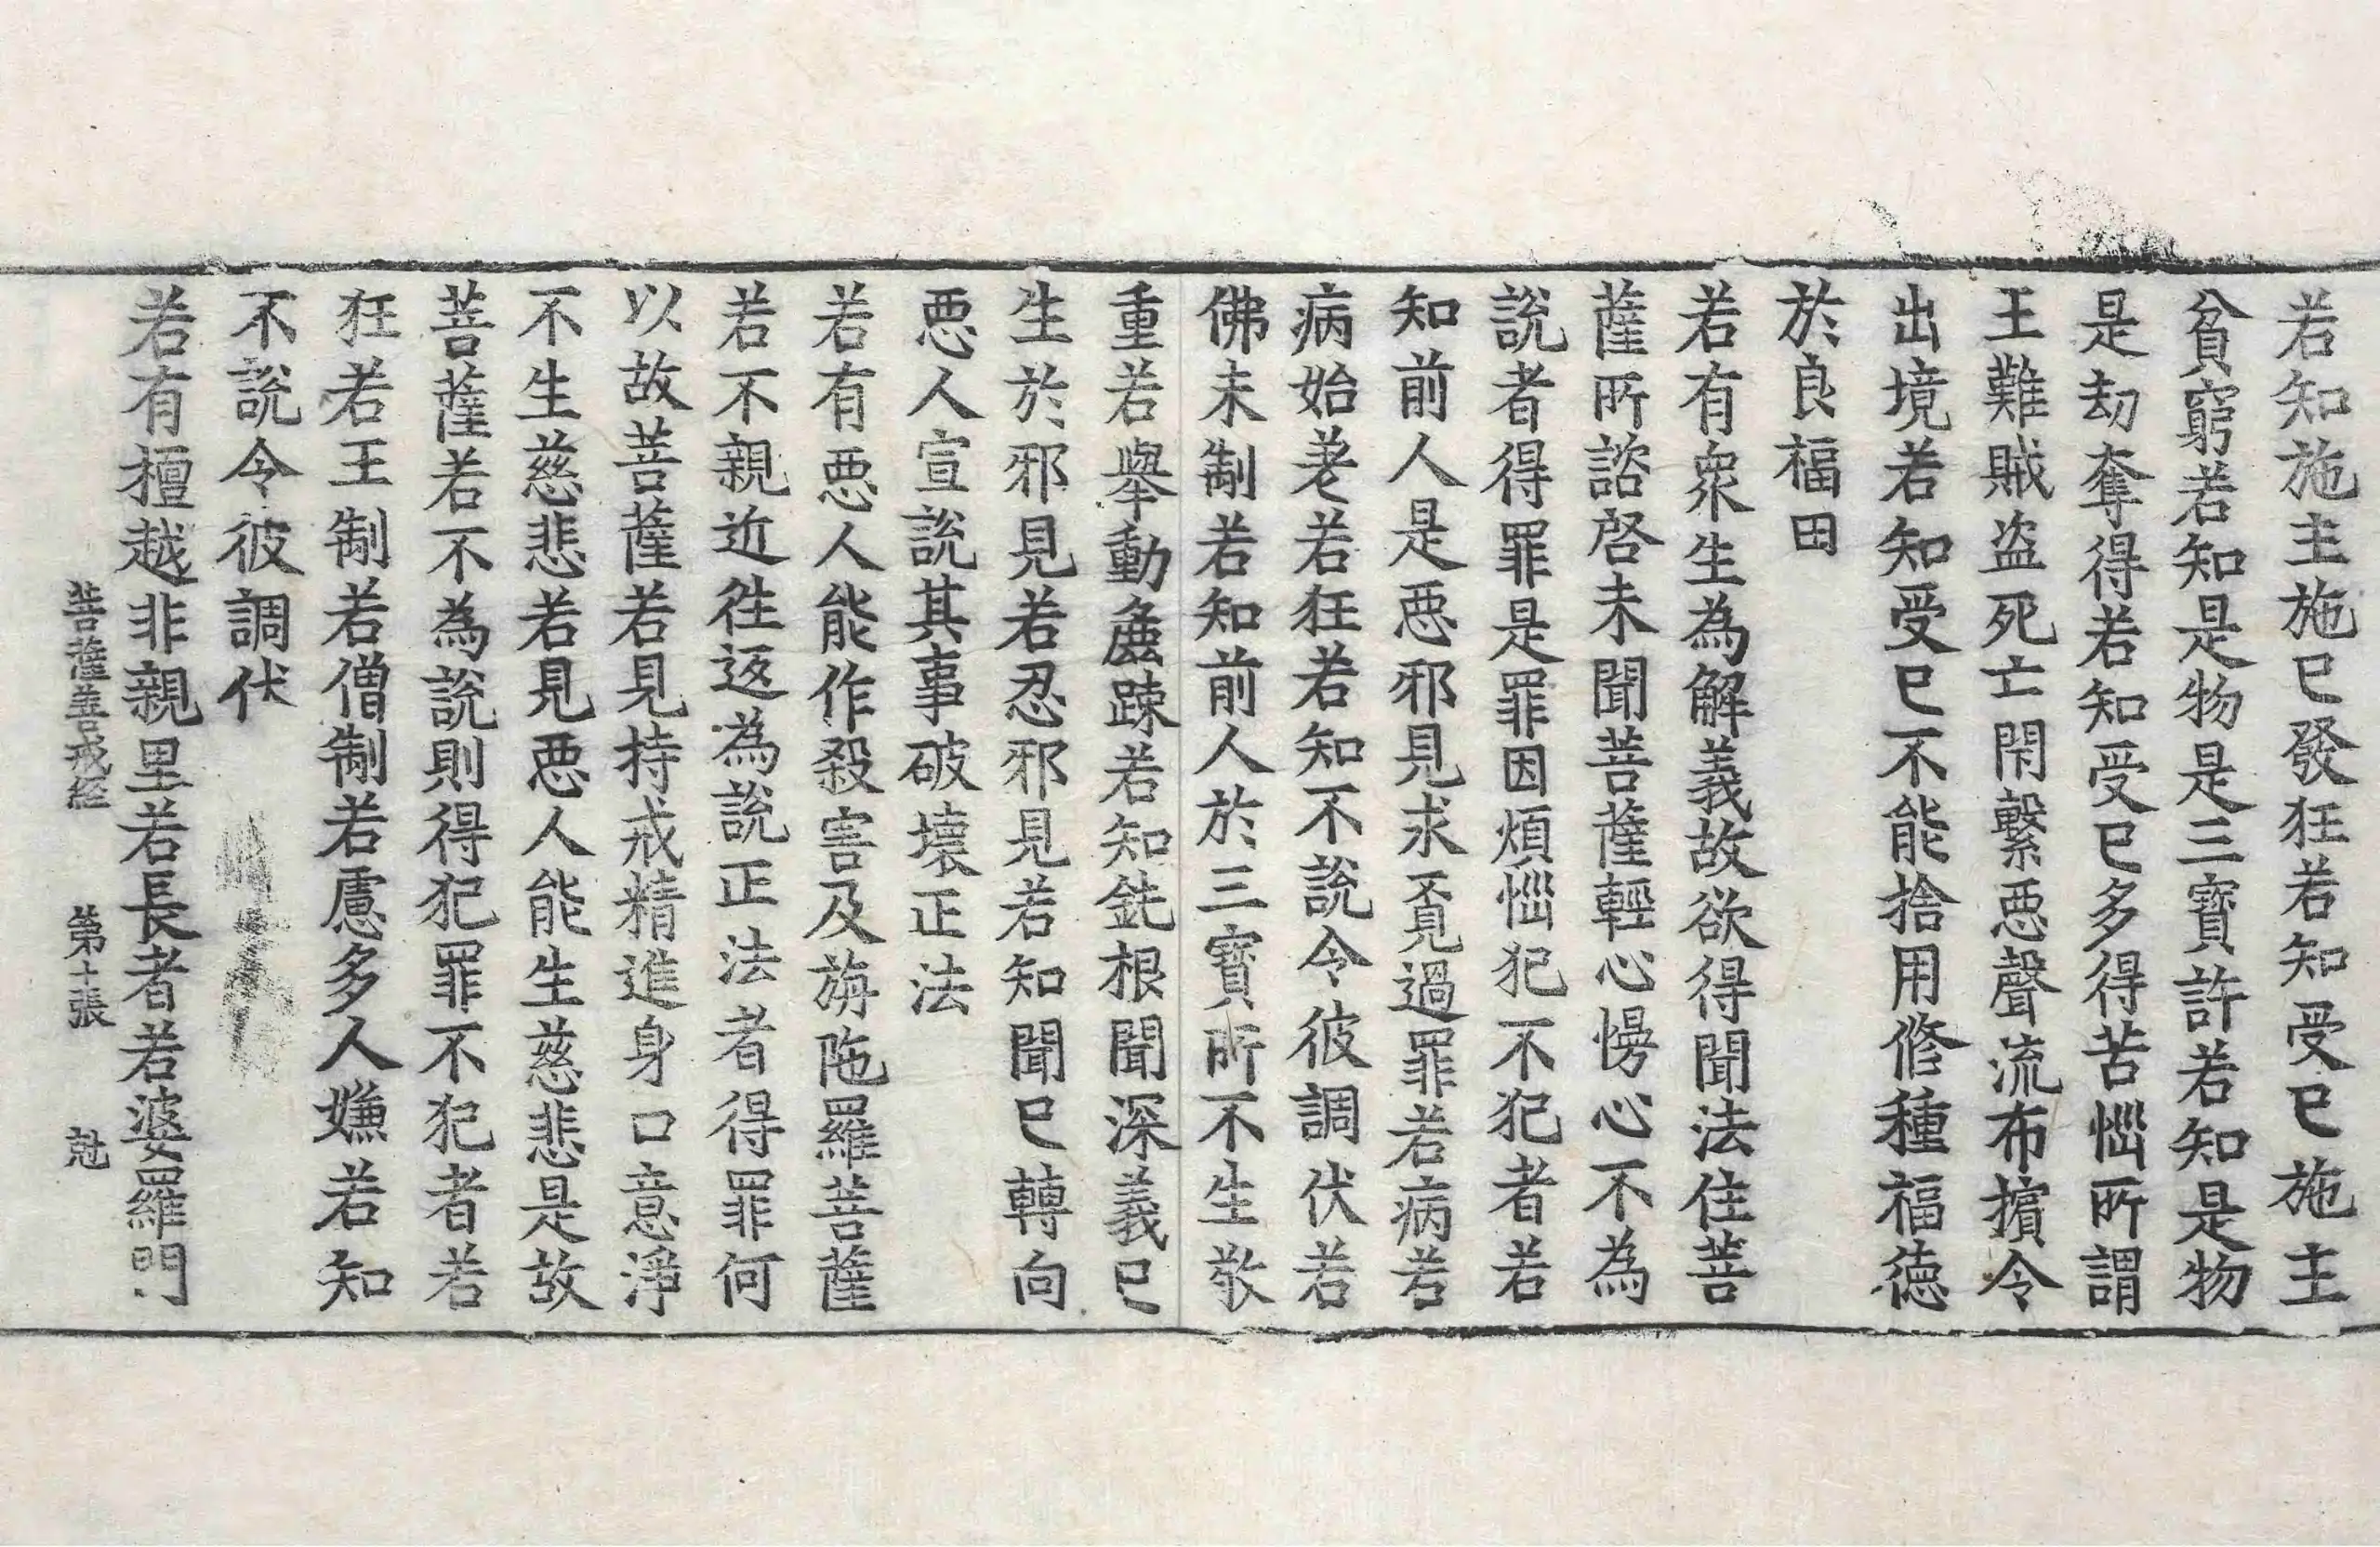 若知施主施已發狂若知受已施主
貧窮若知是物是三寶許若知是物
是劫奪得若知受已多得苦惱所謂
王難賊盜死亡閇繫惡聲流布擯令
出境若知受已不能捨用修種福德
於良福田
若有衆生為解義故欲得聞法住菩
薩所諮啓未聞菩薩輕心慢心不為
說者得罪是罪因煩惱犯不犯者若
知前人是惡邪見求覓過罪若病若
病始差若狂若知不說令彼調伏若
佛未制若知前人於三寶所不生敬
重若舉動麁踈若知鈍根聞深義已
生於邪見若忍邪見若知聞已轉向
惡人宣說其事破壞正法
若有惡人能作殺害及旃陁羅菩薩
若不親近往返為說正法者得罪何
以故菩薩若見持戒精進身口意淨
不生慈悲若見惡人能生慈悲是故
菩薩若不為說則得犯罪不犯者若
狂若王制若僧制若慮多人嫌若知
不說令彼調伏
若有擅越非親里若長者若婆羅門
菩薩善戒經 第十張 尅